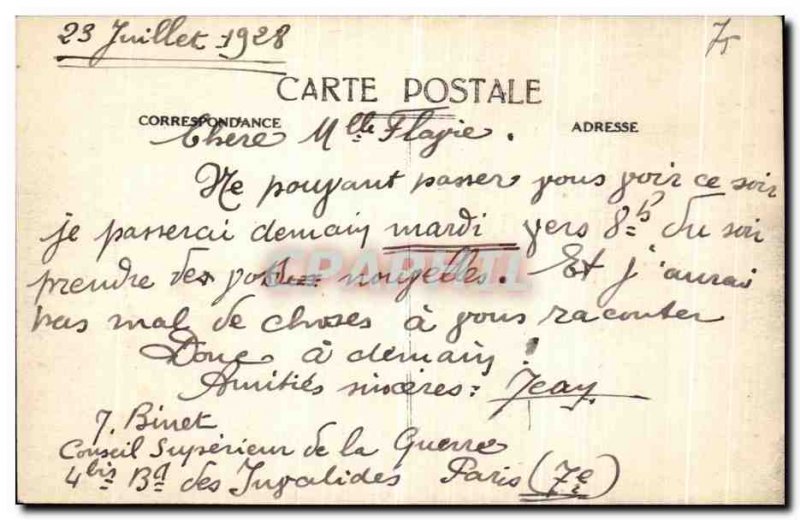 23 Juillet 1928
75
CARTE POSTALE
CORRESPONDANCE
ADRESSE
Chere Mlle Flavie.
Ne pouvant passer vous voir ce soir
je passerai demain mardi vers 8h du soir
prendre des vos nouvelles. Et j'aurai
pas mal de choses à vous raconter
Donc à demain !
Amitiés sincères : Jean
J. Binet
Conseil Supérieur de la Guerre
4bis Bd des Invalides Paris (7e)
CPAPHIL